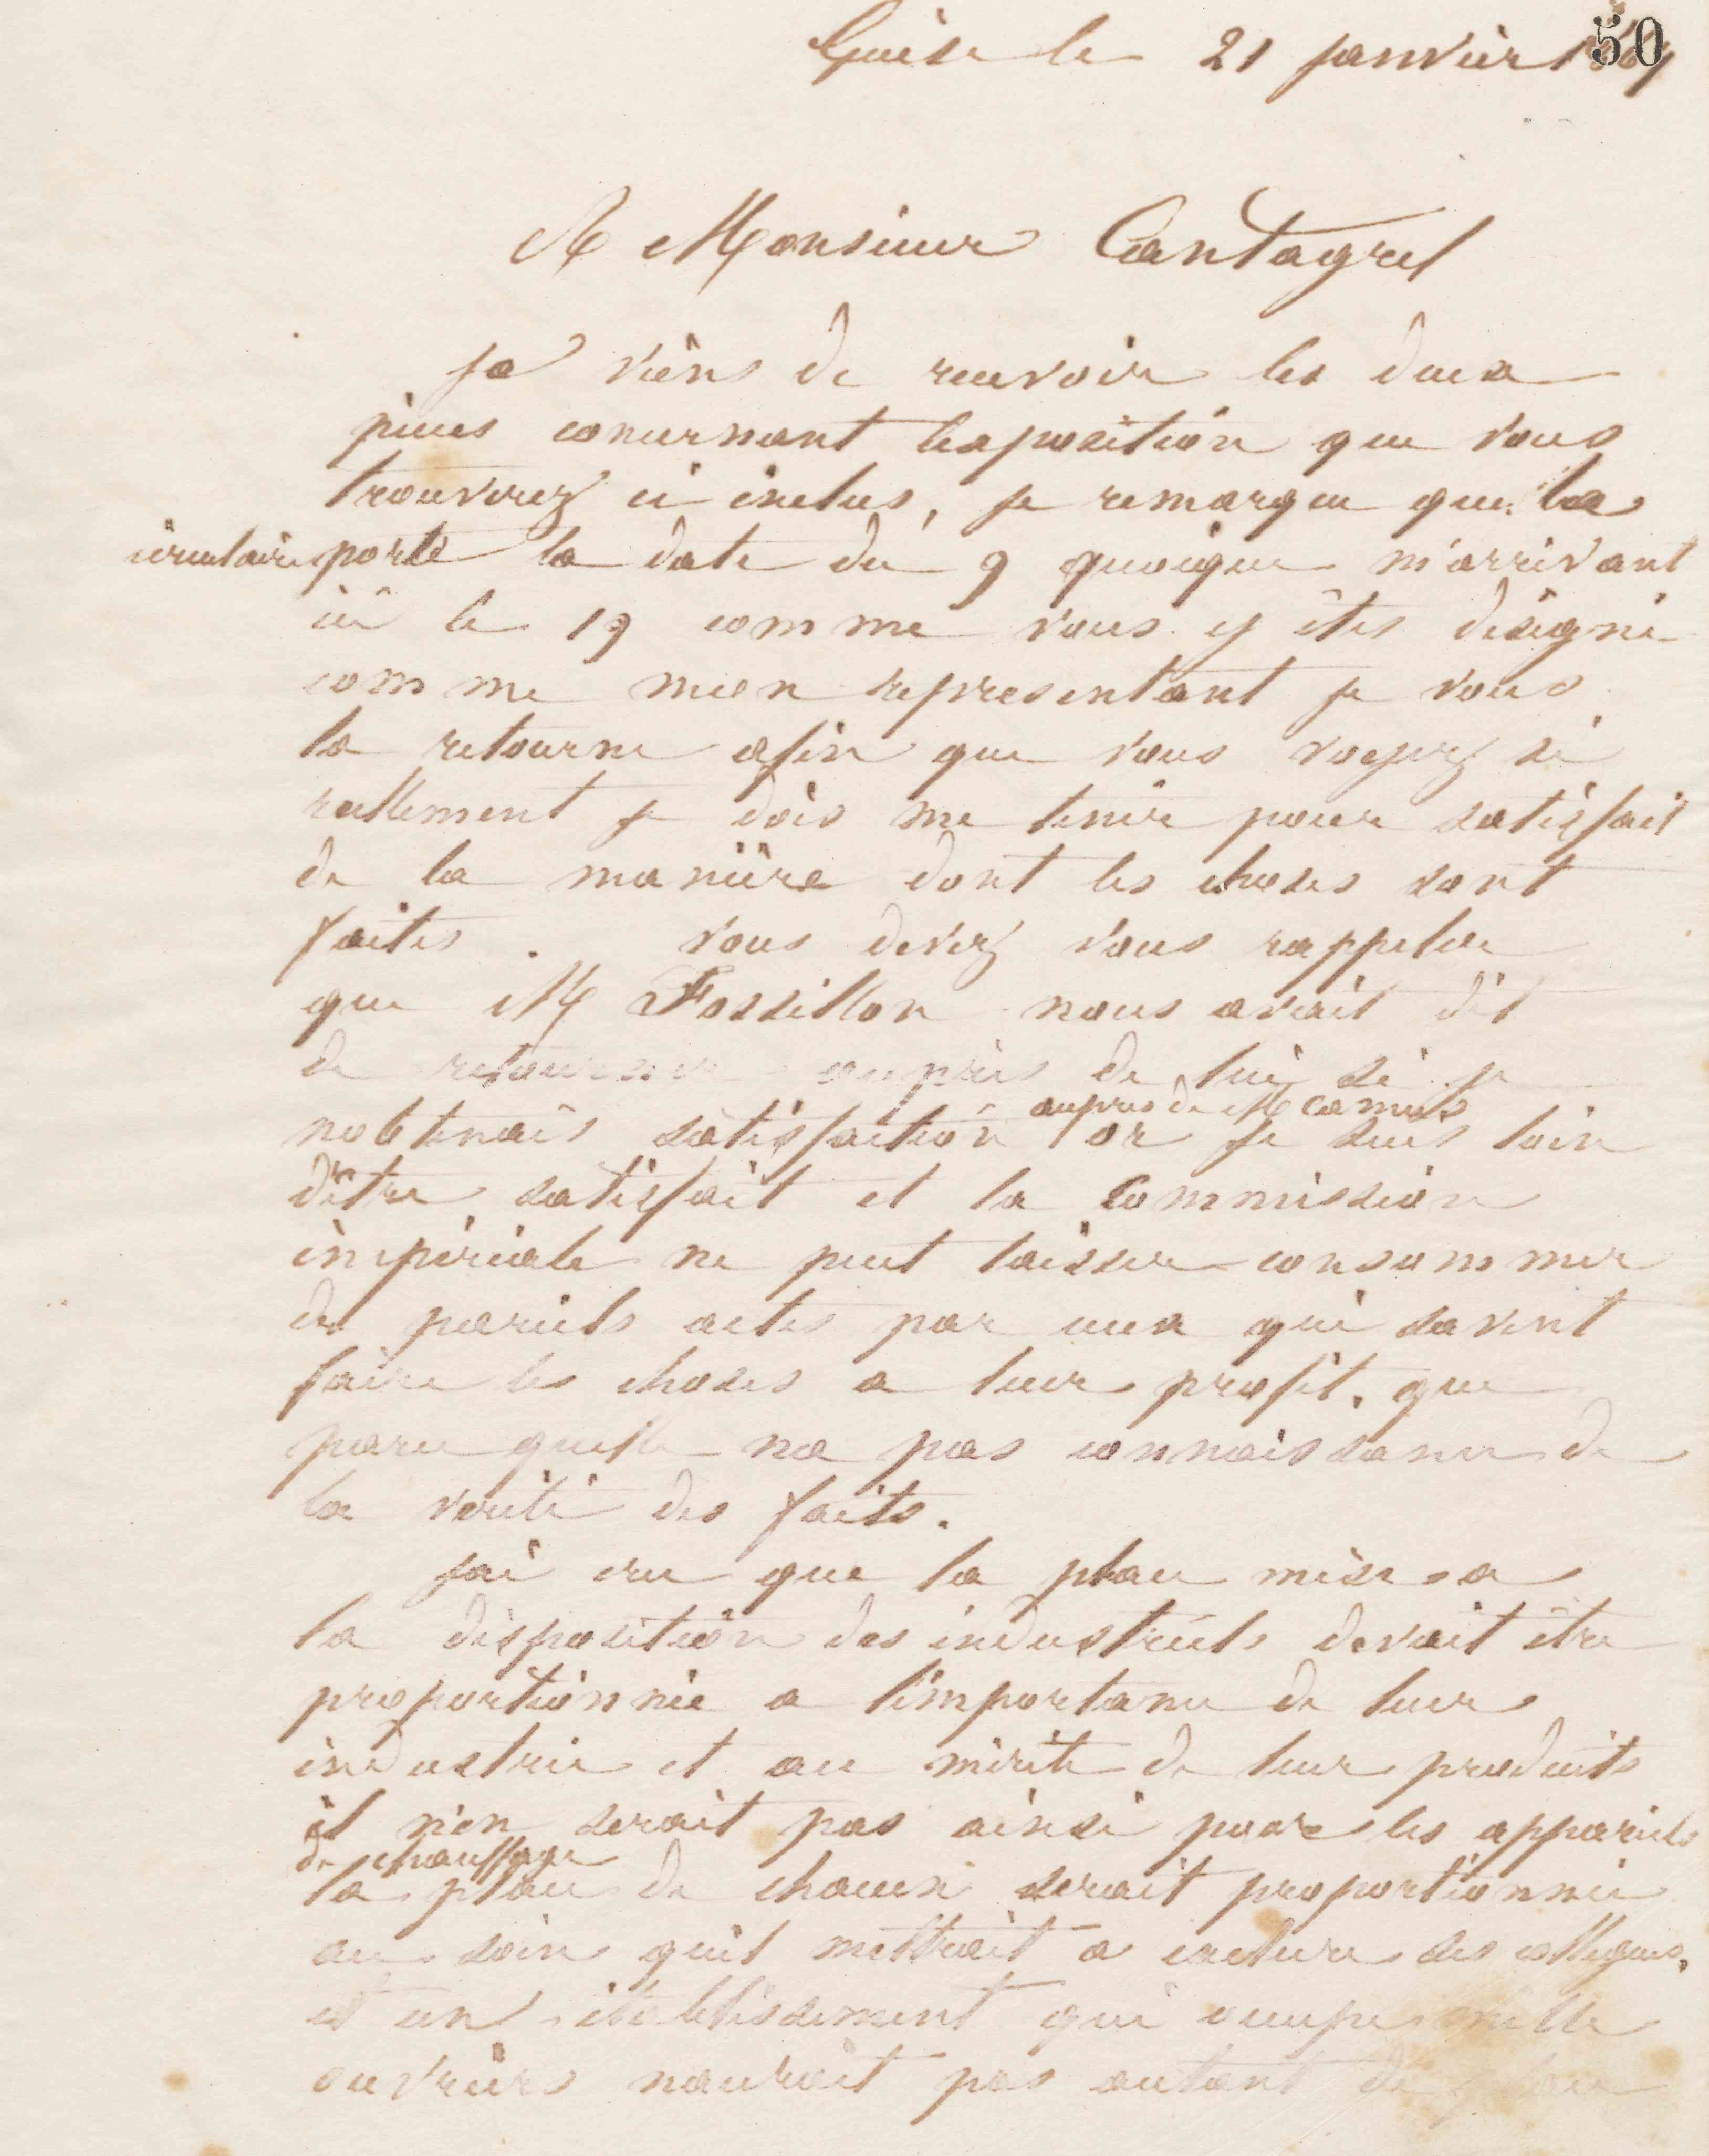 50
Guise le 21 janvier
A Monsieur Cantagrel
Je viens de recevoir les deux
pieces concernant lexposition que vous
trouverez ci inclus, je remarque que la
circulaire porte la date du 9 quoique m'arrivant
ici le 19 comme vous y êtes désigné
comme mon representant je vous
la retourne afin que vous voyez si
reellement je dois me tenir pour satisfait
de la manière dont les choses sont
faites. vous devez vous rappeler
que M Fossillon nous avait dit
de retourner auprès de lui si je
nobtenais satisfaction auprès de M Camus or je suis loin
dêtre satisfait et la Commission
impériale ne peut laisser consommer
de pareils actes par ceux qui savent
faire les choses a leur profit, que
parce quelle na pas connaissance de
la verité des faits.
jai cru que la place mise a
la disposition des industriels devait être
proportionnée a limportance de leur
industrie et au mérite de leur produits
il n'en serait pas ainsi pour les appareils
de chauffage
la place de chacun serait proportionnée
au soin quil mettrait a exclure ses collegues.
et un établissement qui occupe mille
ouvriers naurait pas autant de place